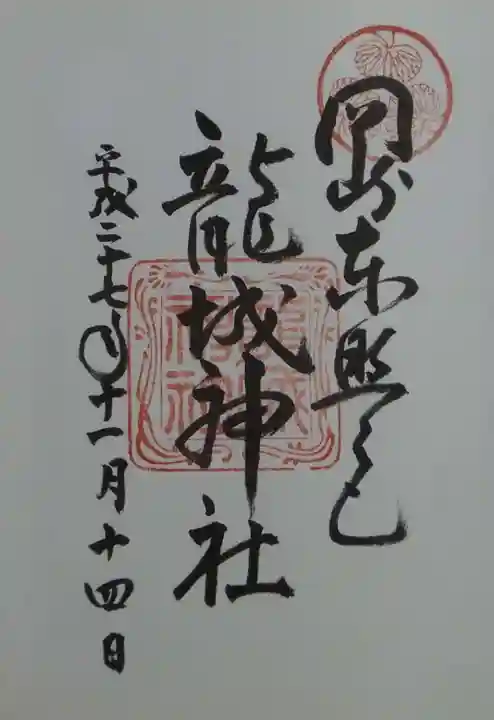 岡崎東照公
龍城神社
平成二十七年十一月十四日
龍城神社